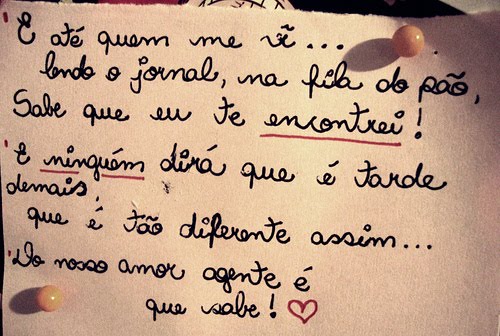 "E até quem me vê...
lendo o jornal, na fila do pão,
Sabe que eu te encontrei!
"E ninguém dirá que é tarde
demais,
que é tão diferente assim...
"Do nosso amor agente é
que sabe! ♡